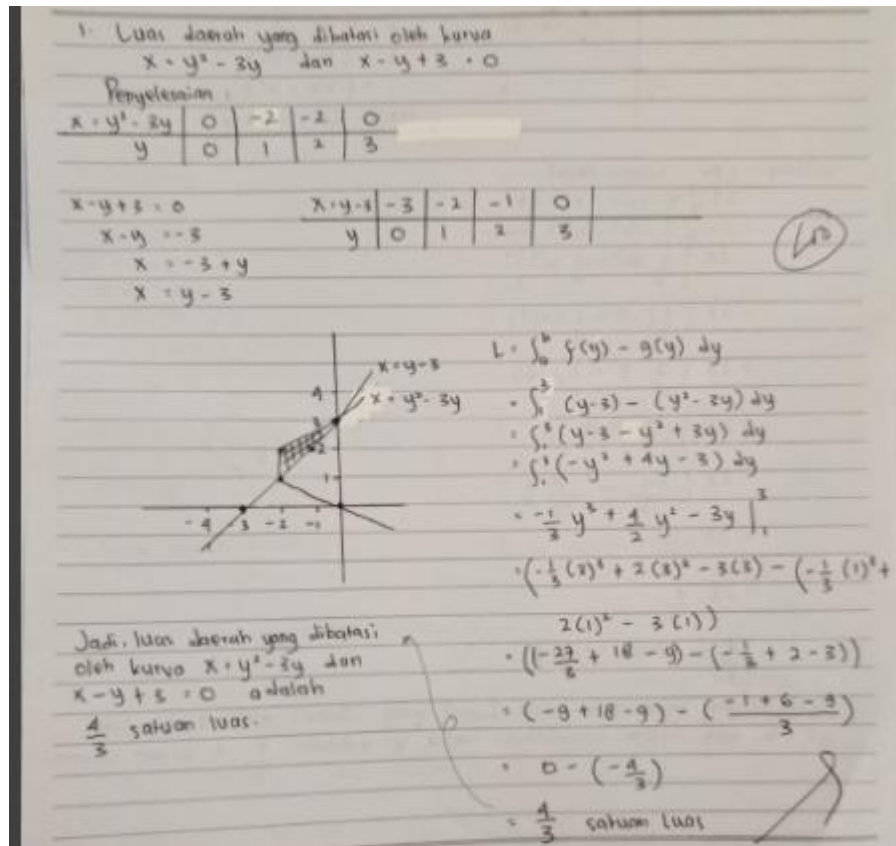 1. Luas daerah yang dibatasi oleh kurva
x = y² - 3y dan x - y + 3 = 0
Penyelesaian :
x = y² - 3y | 0 | -2 | -2 | 0
y | 0 | 1 | 2 | 3
x - y + 3 = 0
x - y = -3
x = -3 + y
x = y - 3
x = y - 3 | -3 | -2 | -1 | 0
y | 0 | 1 | 2 | 3
100
x = y - 3
x = y² - 3y
4
3
2
1
-4 3 -2 -1
L = ∫ₐᵇ f(y) - g(y) dy
= ∫₁³ (y-3) - (y² - 3y) dy
= ∫₁³ (y - 3 - y² + 3y) dy
= ∫₁³ (-y² + 4y - 3) dy
= -1/3 y³ + 4/2 y² - 3y |₁³
= (-1/3 (3)³ + 2(3)² - 3(3) - (-1/3 (1)³ +
2(1)² - 3(1))
= ((-27/3 + 18 - 9) - (-1/3 + 2 - 3))
= (-9 + 18 - 9) - ((-1 + 6 - 9)/3)
= 0 - (-4/3)
= 4/3 satuan luas
Jadi, luas daerah yang dibatasi
oleh kurva x = y² - 3y dan
x - y + 3 = 0 adalah
4/3 satuan luas.